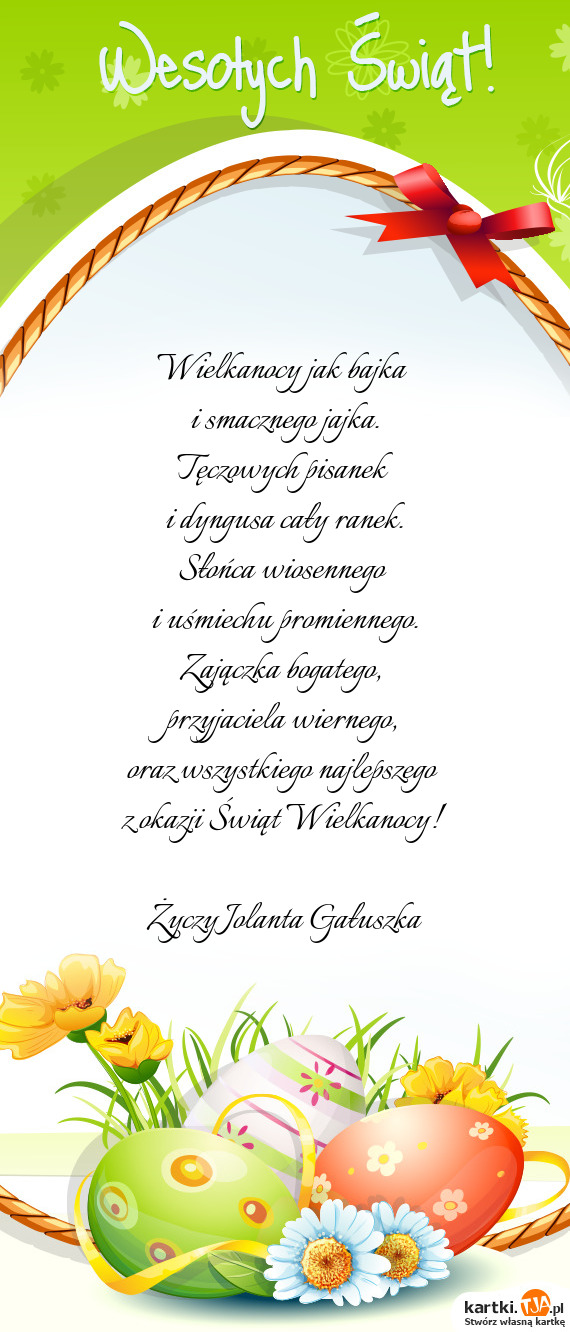 Wesołych Świąt!
Wielkanocy jak bajka
i smacznego jajka.
Tęczowych pisanek
i dyngusa cały ranek.
Słońca wiosennego
i uśmiechu promiennego.
Zajączka bogatego,
przyjaciela wiernego,
oraz wszystkiego najlepszego
z okazji Świąt Wielkanocy!
Życzy Jolanta Gałuszka
kartki.TJA.pl
Stwórz własną kartkę